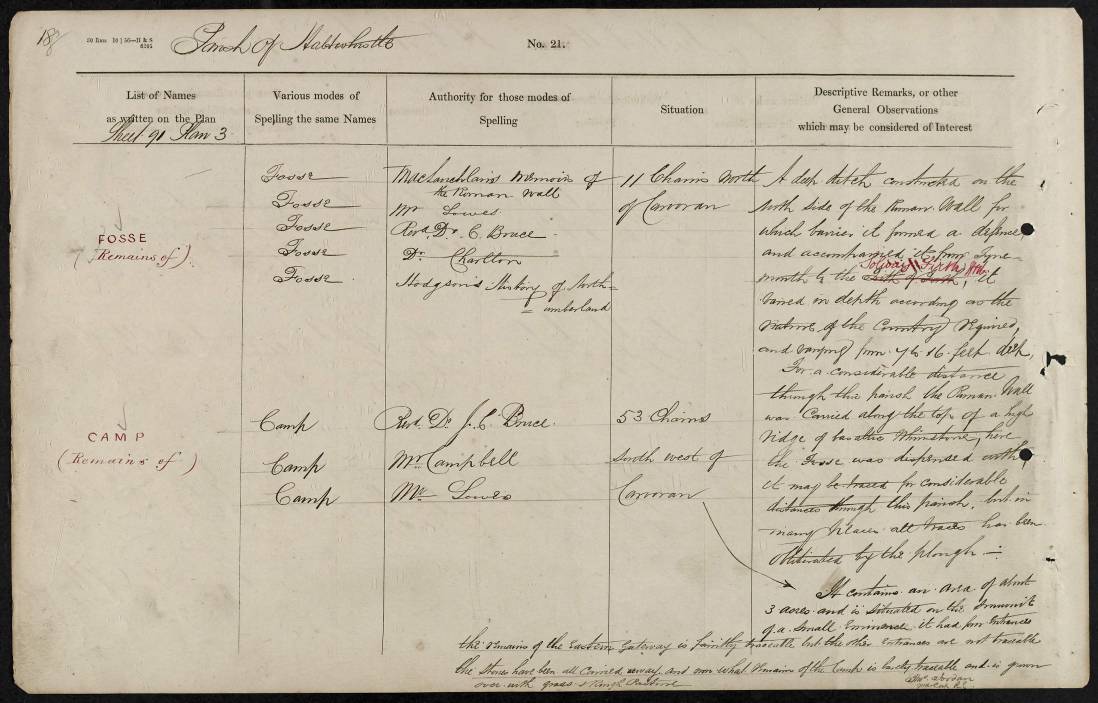 188
Parish of Haltwhistle
No. 21.
List of Names
as written on the Plan
Sheet 91 Plan 3
Various modes of
Spelling the same Names
Authority for those modes of
Spelling
Situation
Descriptive Remarks, or other
General Observations
which may be considered of Interest
FOSSE
(Remains of)
Fosse
Fosse
Fosse
Fosse
Fosse
MacLauchlan's Memoir of
the Roman Wall
Mr Lowes
Revd. Dr. C. Bruce
Dr. Charlton
Hodgson's History of North=
umberland
11 Chains North
of Carvoran
A deep ditch constructed on the
North Side of the Roman Wall for
which barrier it formed a defence,
and accompanied it from Tyne-
mouth to the Solway Firth, it
varied in depth according as the
nature of the Country required,
and varying from 7 to 16 feet deep,
For a considerable distance
through this parish the Roman Wall
was Carried along the top of a high
ridge of basaltic Whinstone, here
the Fosse was dispensed with,
it may be traced for considerable
distances through this parish, but in
many places all traces has been
obliterated by the plough
CAMP
(Remains of)
Camp
Camp
Camp
Revd. Dr. J. C. Bruce
Mr Campbell
Mr Lowes
53 Chains
South west of
Carvoran
It contains an area of about
3 acres and is situated on the Summit
of a small Eminence. it had four Entrances
the remains of the Eastern Gateway is faintly traceable but the other Entrances are not traceable
the Stones have been all Carried away and now what remains of the Camp is barely traceable and is grown
over with grass & Rough Pasture